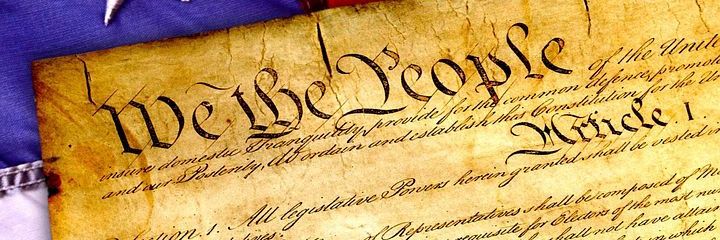 We the People
of the Unite
insure domestic Tranquility, provide for the common defence, promote
and our Posterity, do ordain and establish this Constitution for the U
Article I.
Section. 1. All legislative Powers herein granted shall be vested
of Representatives shall be composed of M
requisite for Electors of the most nu
shall not have attain